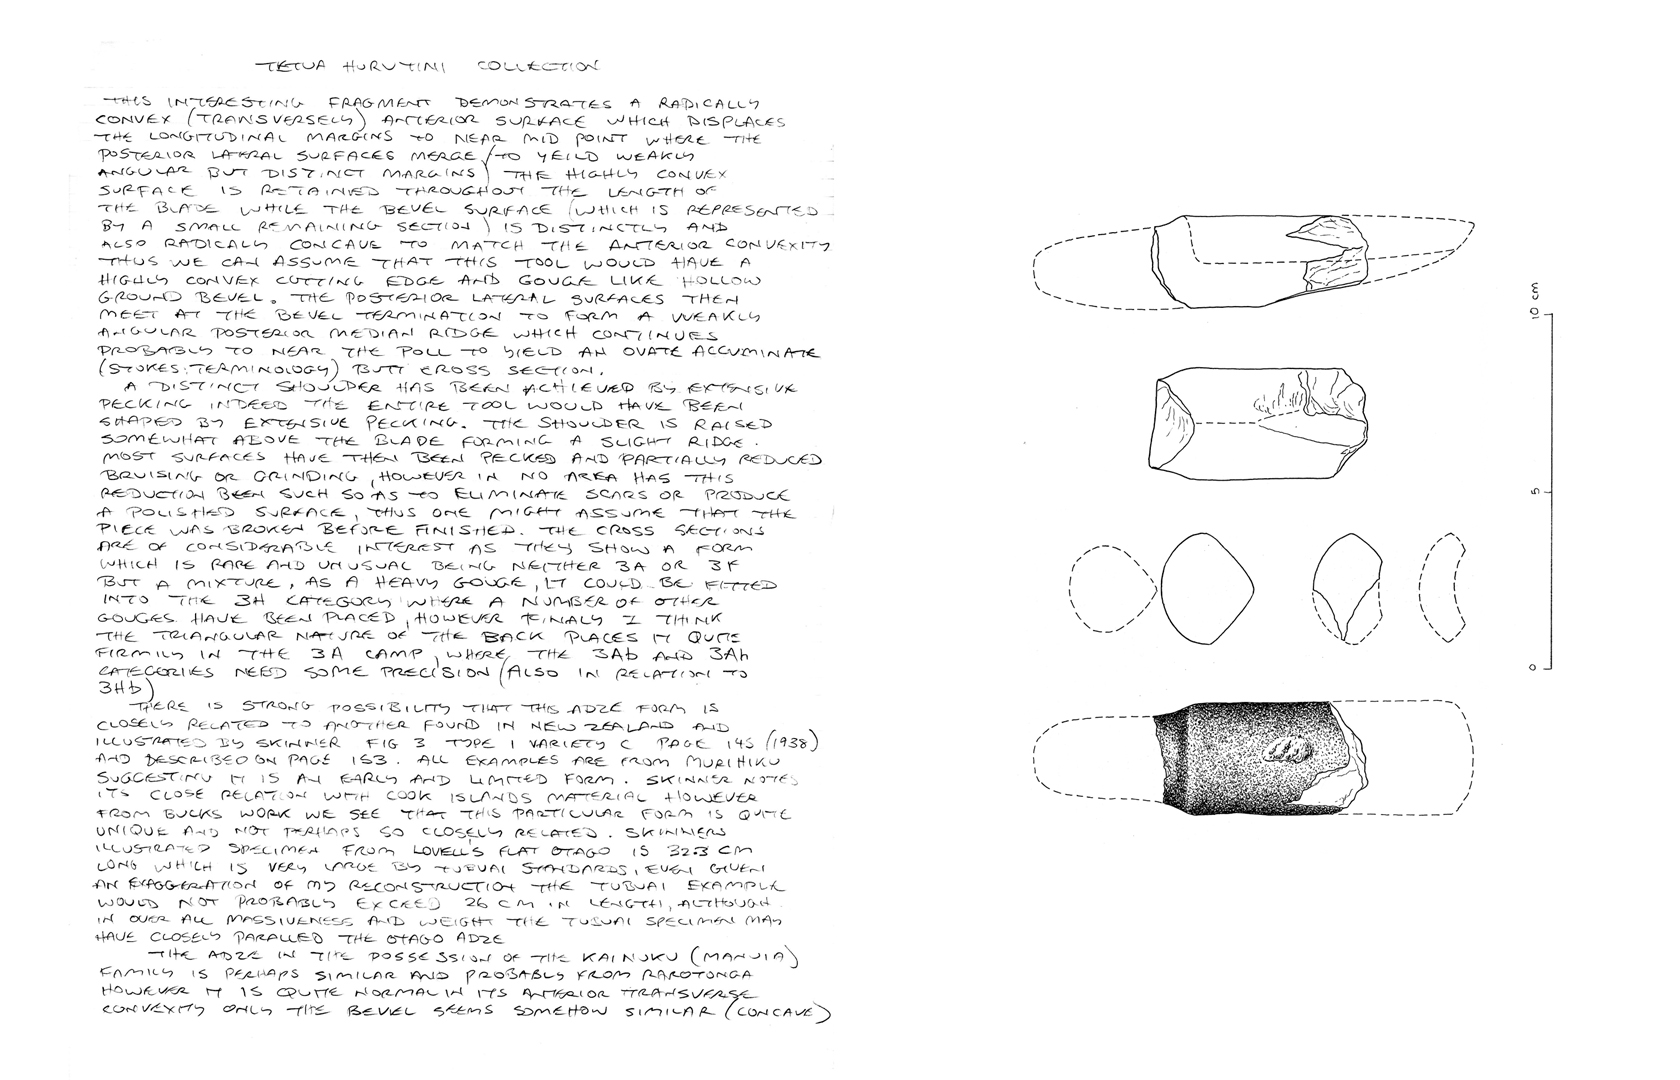 TETUA HURUTINI COLLECTION
THIS INTERESTING FRAGMENT DEMONSTRATES A RADICALLY
CONVEX (TRANSVERSELY) ANTERIOR SURFACE WHICH DISPLACES
THE LONGITUDINAL MARGINS TO NEAR MID POINT WHERE THE
POSTERIOR LATERAL SURFACES MERGE (TO YEILD WEAKLY
ANGULAR BUT DISTINCT MARGINS) THE HIGHLY CONVEX
SURFACE IS RETAINED THROUGHOUT THE LENGTH OF
THE BLADE WHILE THE BEVEL SURFACE (WHICH IS REPRESENTED
BY A SMALL REMAINING SECTION) IS DISTINCTLY AND
ALSO RADICALLY CONCAVE TO MATCH THE ANTERIOR CONVEXITY
THUS WE CAN ASSUME THAT THIS TOOL WOULD HAVE A
HIGHLY CONVEX CUTTING EDGE AND GOUGE LIKE HOLLOW
GROUND BEVEL. THE POSTERIOR LATERAL SURFACES THEN
MEET AT THE BEVEL TERMINATION TO FORM A WEAKLY
ANGULAR POSTERIOR MEDIAN RIDGE WHICH CONTINUES
PROBABLY TO NEAR THE POLL TO YIELD AN OVATE ACCUMINATE
(STOKES:TERMINOLOGY) BUTT CROSS SECTION.
A DISTINCT SHOULDER HAS BEEN ACHIEVED BY EXTENSIVE
PECKING INDEED THE ENTIRE TOOL WOULD HAVE BEEN
SHAPED BY EXTENSIVE PECKING. THE SHOULDER IS RAISED
SOMEWHAT ABOVE THE BLADE FORMING A SLIGHT RIDGE.
MOST SURFACES HAVE THEN BEEN PECKED AND PARTIALLY REDUCED
BRUISING OR GRINDING, HOWEVER IN NO AREA HAS THIS
REDUCTION BEEN SUCH SO AS TO ELIMINATE SCARS OR PRODUCE
A POLISHED SURFACE, THUS ONE MIGHT ASSUME THAT THE
PIECE WAS BROKEN BEFORE FINISHED. THE CROSS SECTIONS
ARE OF CONSIDERABLE INTEREST AS THEY SHOW A FORM
WHICH IS RARE AND UNUSUAL BEING NEITHER 3A OR 3F
BUT A MIXTURE, AS A HEAVY GOUGE, IT COULD BE FITTED
INTO THE 3H CATEGORY WHERE A NUMBER OF OTHER
GOUGES HAVE BEEN PLACED, HOWEVER FINALY I THINK
THE TRIANGULAR NATURE OF THE BACK PLACES IT QUITE
FIRMLY IN THE 3A CAMP, WHERE THE 3Ab AND 3Ah
CATEGORIES NEED SOME PRECISION (ALSO IN RELATION TO
3Hb)
THERE IS STRONG POSSIBILITY THAT THIS ADZE FORM IS
CLOSELY RELATED TO ANOTHER FOUND IN NEW ZEALAND AND
ILLUSTRATED BY SKINNER FIG 3 TYPE 1 VARIETY C PAGE 145 (1938)
AND DESCRIBED ON PAGE 153. ALL EXAMPLES ARE FROM MURIHIKU
SUGGESTING IT IS AN EARLY AND LIMITED FORM. SKINNER NOTES
ITS CLOSE RELATION WITH COOK ISLANDS MATERIAL HOWEVER
FROM BUCKS WORK WE SEE THAT THIS PARTICULAR FORM IS QUITE
UNIQUE AND NOT PERHAPS SO CLOSELY RELATED. SKINNERS
ILLUSTRATED SPECIMEN FROM LOVELL'S FLAT OTAGO IS 32.3 CM
LONG WHICH IS VERY LARGE BY TUBUAI STANDARDS, EVEN GIVEN
AN EXAGGERATION OF MY RECONSTRUCTION THE TUBUAI EXAMPLE
WOULD NOT PROBABLY EXCEED 26 CM IN LENGTH, ALTHOUGH
IN OVER ALL MASSIVENESS AND WEIGHT THE TUBUAI SPECIMEN MAY
HAVE CLOSELY PARALLED THE OTAGO ADZE
THE ADZE IN THE POSSESSION OF THE KAINUKU (MANUIA)
FAMILY IS PERHAPS SIMILAR AND PROBABLY FROM RAROTONGA
HOWEVER IT IS QUITE NORMAL IN ITS ANTERIOR TRANSVERSE
CONVEXITY ONLY THE BEVEL SEEMS SOMEHOW SIMILAR (CONCAVE)
10 cm
5
0